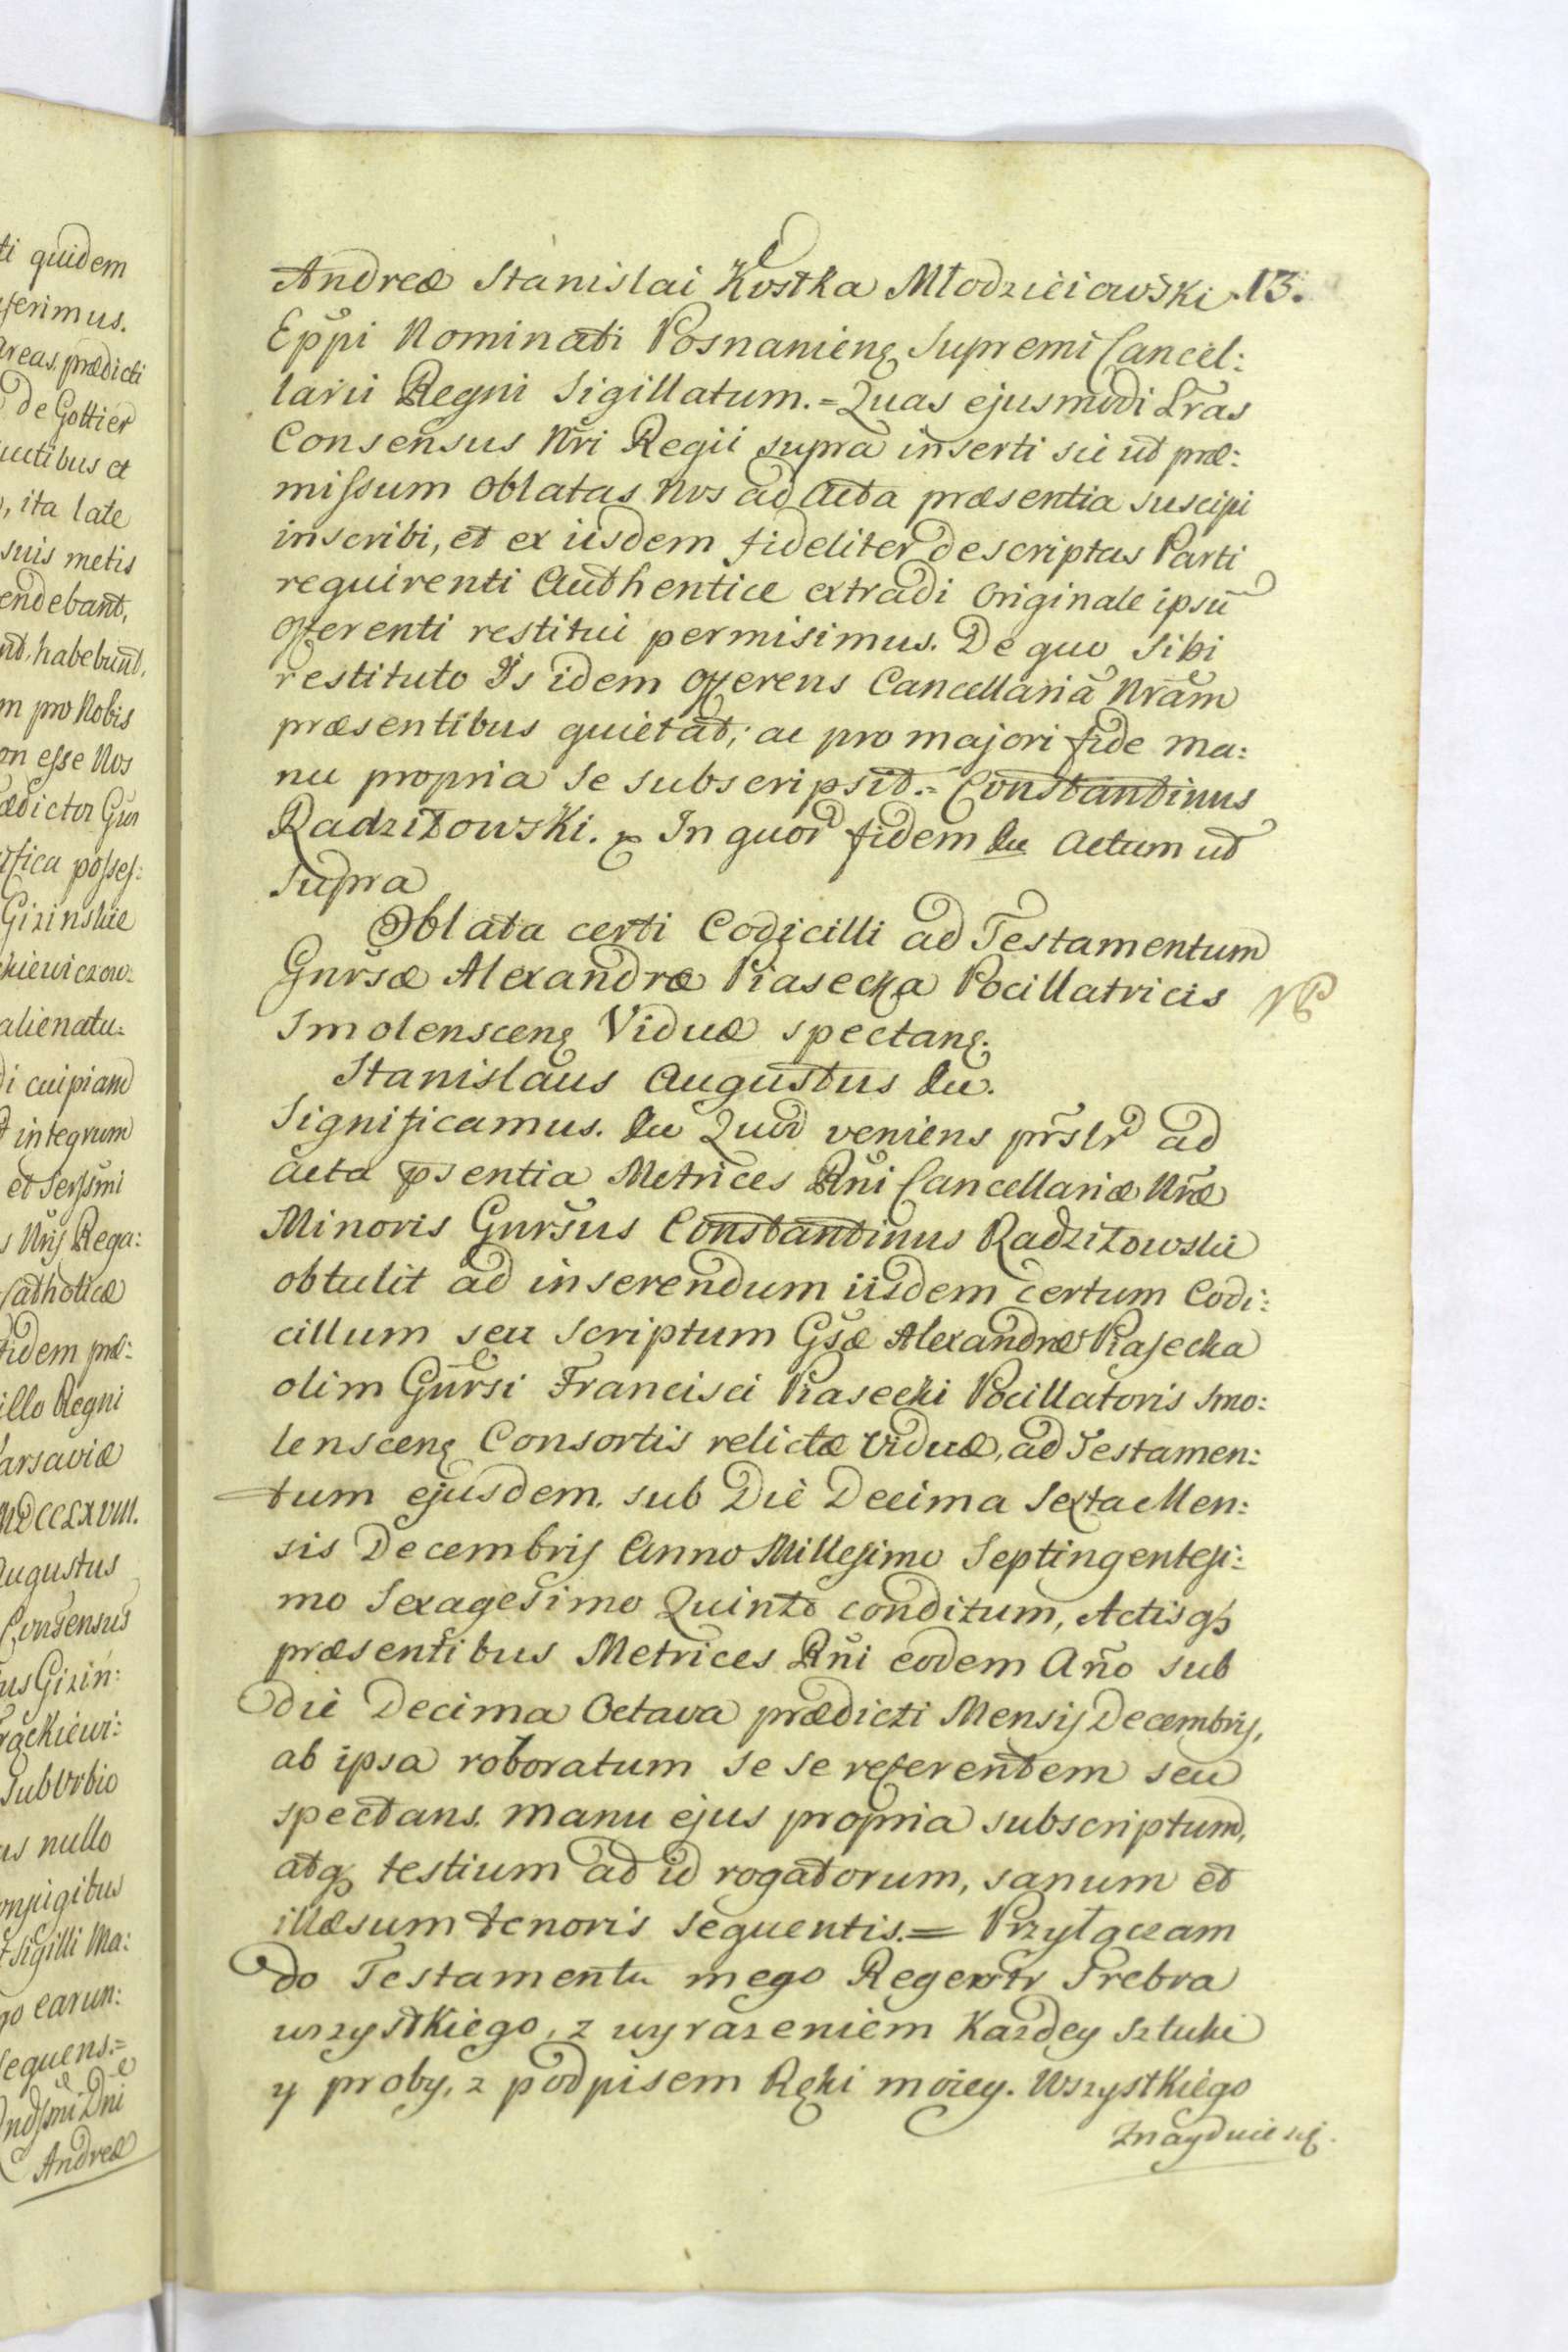 ti quidem
serimus.
areas, prædicti
de Gottier
uctibus et
, ita late
suis metis
endebant,
nt, habebunt,
m pro Nobis
on esse Nos
ædictor Gnr
ifica posses:
Gizinskie
kiewiczow:
alienatu:
di cuipiam
t integrum
et Serssmi
s Nris Rega:
Catholicæ
fidem præ:
illo Regni
arsaviæ
MDCCLXVIII.
Augustus
Consensus
us Gizin:
rackiewi:
Suburbio
us nullo
onjugibus
t Sigilli Ma:
go earun:
sequens.=
Dni
Andreæ
Andreæ Stanislai Kostka Młodzieiowski 13.
Eppi Nominati Posnanien̄ Supremi Cancel:
larii Regni Sigillatum.= Quas ejusmodi Lras
Consensus Nri Regii supra inserti sic ut præ:
missum oblatas Nos ad Acta præsentia suscipi
inscribi, et ex iisdem fideliter descriptas Parti
requirenti Authentice extradi Originale ipsū
offerenti restitui permisimus. De quo Sibi
restituto Is idem offerens Cancellariā Nram
præsentibus quietat; ac pro majori fide ma:
nu propria se subscripsit.= Constantinus
Radzitowski. In quor fidem &c Actum ut
Supra
Oblata certi Codicilli ad Testamentum
Gnrsæ Alexandræ Piasecka Pocillatricis
Smolenscen̄ Viduæ spectan̄.
NP
Stanislaus Augustus &c.
Significamus. &c Quod veniens prslr ad
Acta psentia Metrices Rni Cancellariæ Nræ
Minoris Gnrsus Constantinus Radzitowski
obtulit ad inserendum iisdem certum Codi:
cillum seu Scriptum Gsæ Alexandræ Piasecka
olim Gnrsi Francisci Piasecki Pocillatoris Smo:
lenscen̄ Consortis relictæ Viduæ, ad Testamen:
tum ejusdem. sub Die Decima Sexta Men:
sis Decembris Anno Millesimo Septingentesi:
mo Sexagesimo Quinto conditum, Actisq̃
præsentibus Metrices Rni eodem Año sub
die Decima Octava prædicti Mensis Decembris,
ab ipsa roboratum se se referentem seu
spectans. manu ejus propria subscriptum,
atq̃ testium ad id rogatorum, sanum et
illæsum tenoris sequentis.= Przyłączam
do Testamentu mego Regestr Srebra
wszystkiego, z wyrazeniem Kazdey Sztuki
y proby, z podpisem Ręki moiey. Wszystkiego
Znayduie się.